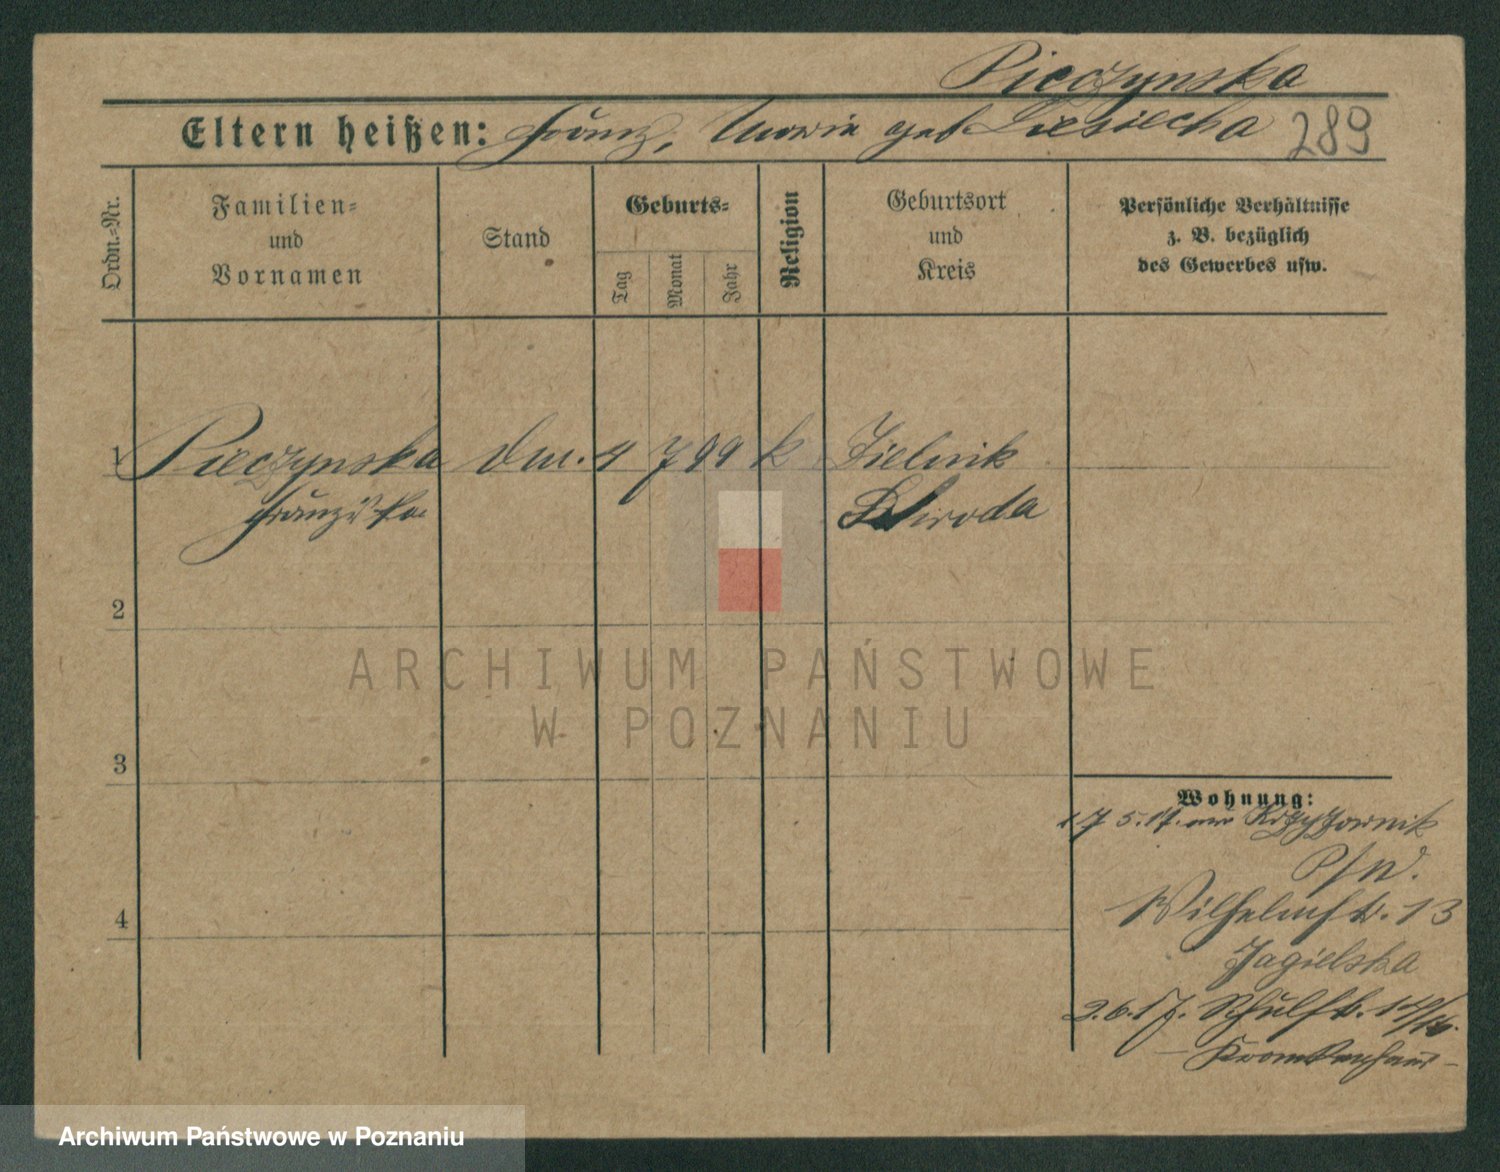 Pieczynska
Eltern heißen: Franz, Maria geb Ciesiecha 289
Ordn.=Nr.
Familien=
und
Vornamen
Stand
Geburts=
Tag
Monat
Jahr
Religion
Geburtsort
und
Kreis
Persönliche Verhältnisse
z. B. bezüglich
des Gewerbes usw.
1 Pieczynska 4 7 99 k Zielnik
Franziska Schroda
2
3
4
Wohnung:
17 5.17. aus Krzyzownik
Wilhelmstr. 13
Jagielska
2.6.17. Schulstr.
Krankenhaus
ARCHIWUM PAŃSTWOWE
W POZNANIU
Archiwum Państwowe w Poznaniu